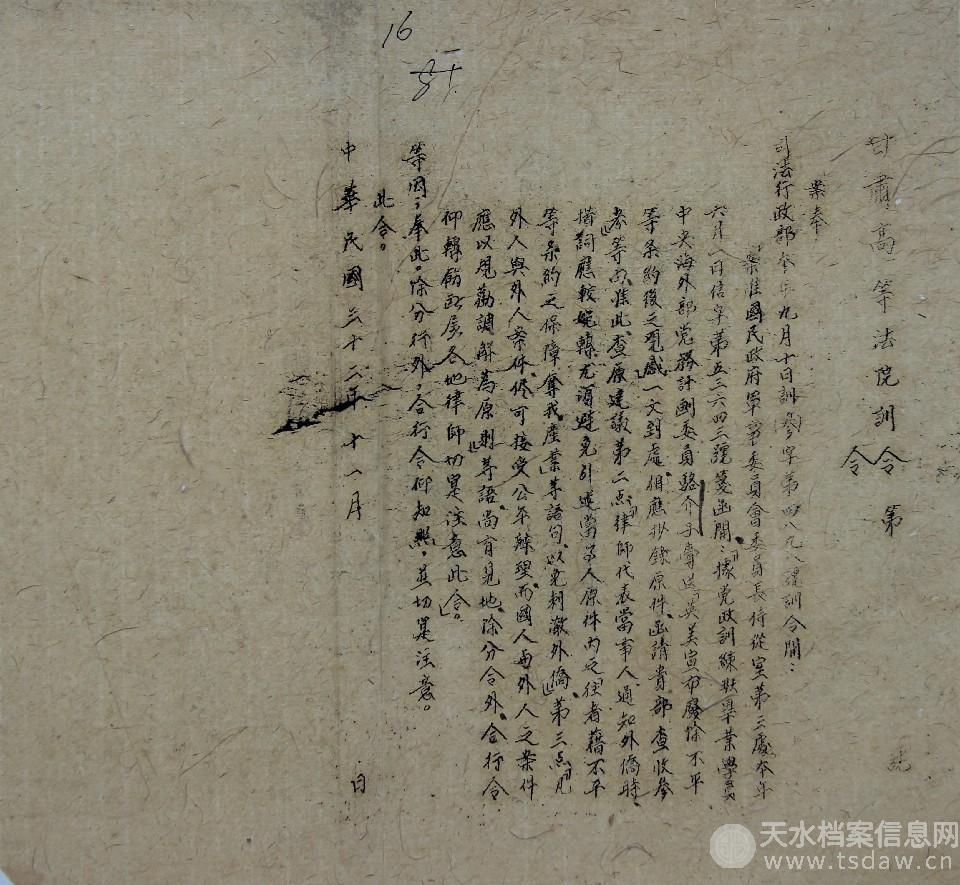 16
甘肅高等法院訓令 第 號
令
案奉
司法行政部本年九月十日訓(參)字第四八九八號訓令開：
案准國民政府軍事委員會委員長侍從室第三處本年
六月一日信字第五三六四三號箋函開：「據党政訓練班畢業學員
中央海外部党務計劃委員駱介子賷送『英美宣布廢除不平
等条約後之觀感』一文到處，相應抄錄原件，函請貴部查收參
考」等由，准此，查原建議第二点「律師代表當事人通知外僑時，
措詞應較婉轉，尤須避免引述當事人原件内之『往者藉不平
等条約之保障奪我產業』等語句，以免刺激外僑」，第三点「凡
外人與外人案件，儘可接受，公平辦理，而國人與外人之案件
應以規勸調解為原則」等語，尚有見地，除分令外，合行令
仰轉飭所屬各地律師切寔注意此令。」
等因；奉此。除分行外，合行令仰知照，並切寔注意。
此令。
中華民國三十二年十一月 日
天水档案信息网
www.tsdaw.cn